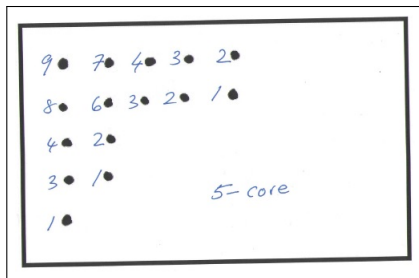 9 7 4 3 2
8 6 3 2 1
4 2
3 1
5-core
1